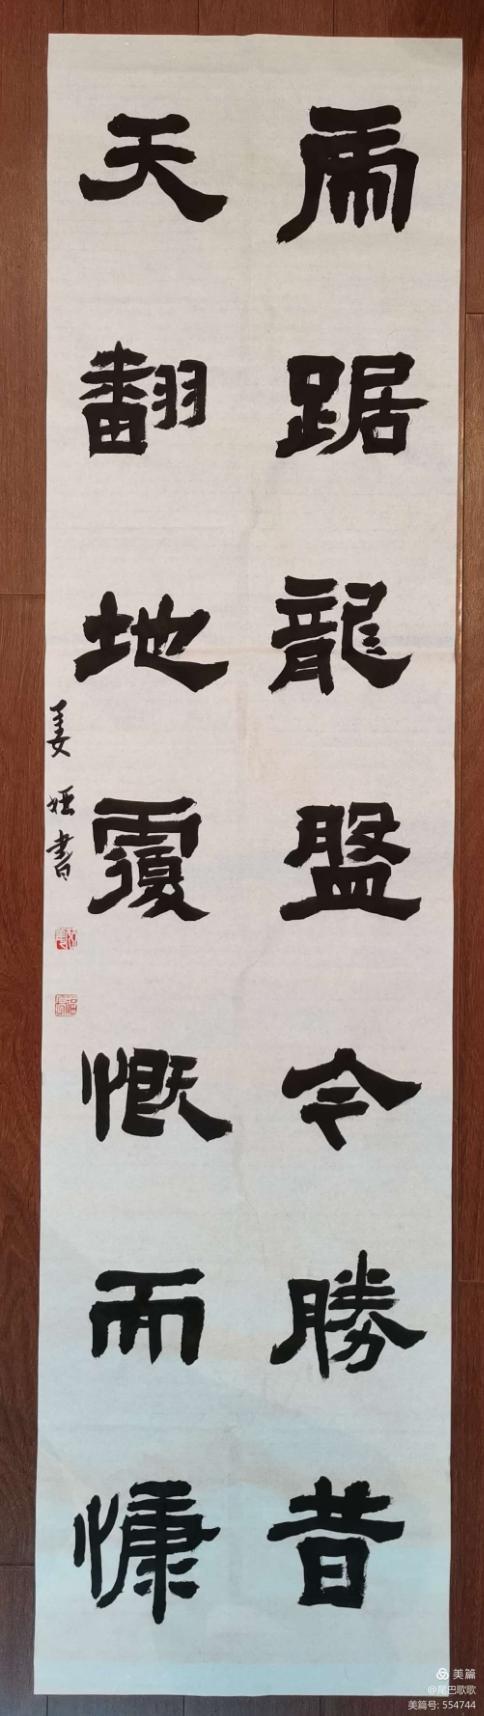 虎踞龍盤今勝昔
天翻地覆慨而慷
姜書
美篇
@尾巴歌歌
美篇号: 554744